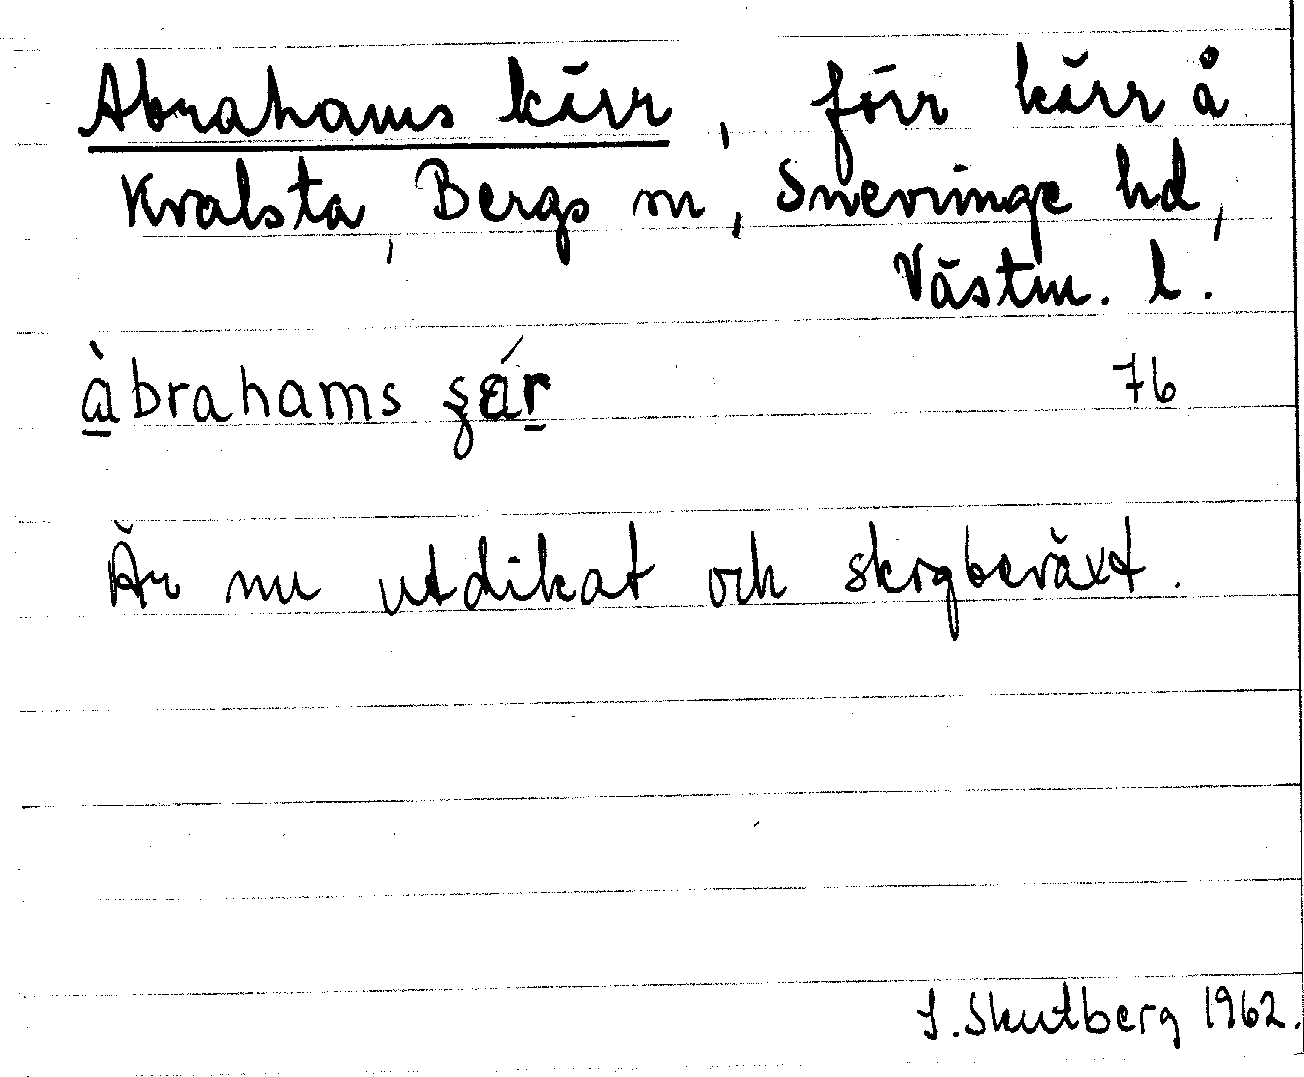 Abrahams kärr, förr kärr å
Kvalsta, Bergs sn, Snevringe hd,
Västm. l.
àbrahams şár 76
Är nu utdikat och skogbeväxt.
I. Skutberg 1962.